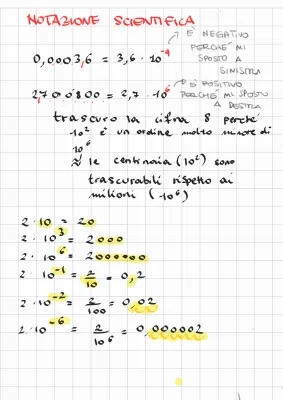 NOTAZIONE SCIENTIFICA
0,0003,6 = 3,6 · 10⁻⁴
È NEGATIVO
PERCHÉ MI
SPOSTO A
SINISTRA
2,700800 = 2,7 · 10⁶
È POSITIVO
PERCHÉ MI SPOSTO
A DESTRA
trascuro la cifra 8 perché
10² è un ordine molto minore di
10⁶
le centinaia (10²) sono
trascurabili rispetto ai
milioni (10⁶)
2 · 10 = 20
2 · 10³ = 2000
2 · 10⁶ = 2000000
2 · 10⁻¹ = 2/10 = 0,2
2 · 10⁻² = 2/100 = 0,02
2 · 10⁻⁶ = 2/10⁶ = 0,000002